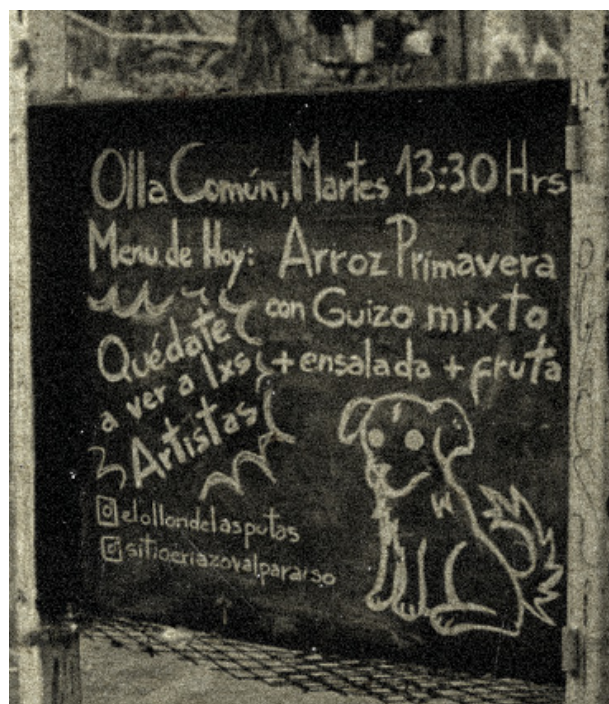 Olla Común, Martes 13:30 Hrs
Menu de Hoy: Arroz Primavera
con Guizo mixto
+ ensalada + fruta
Quédate
a ver a lxs
Artistas
elollondelasputas
sitioeriazovalparaiso